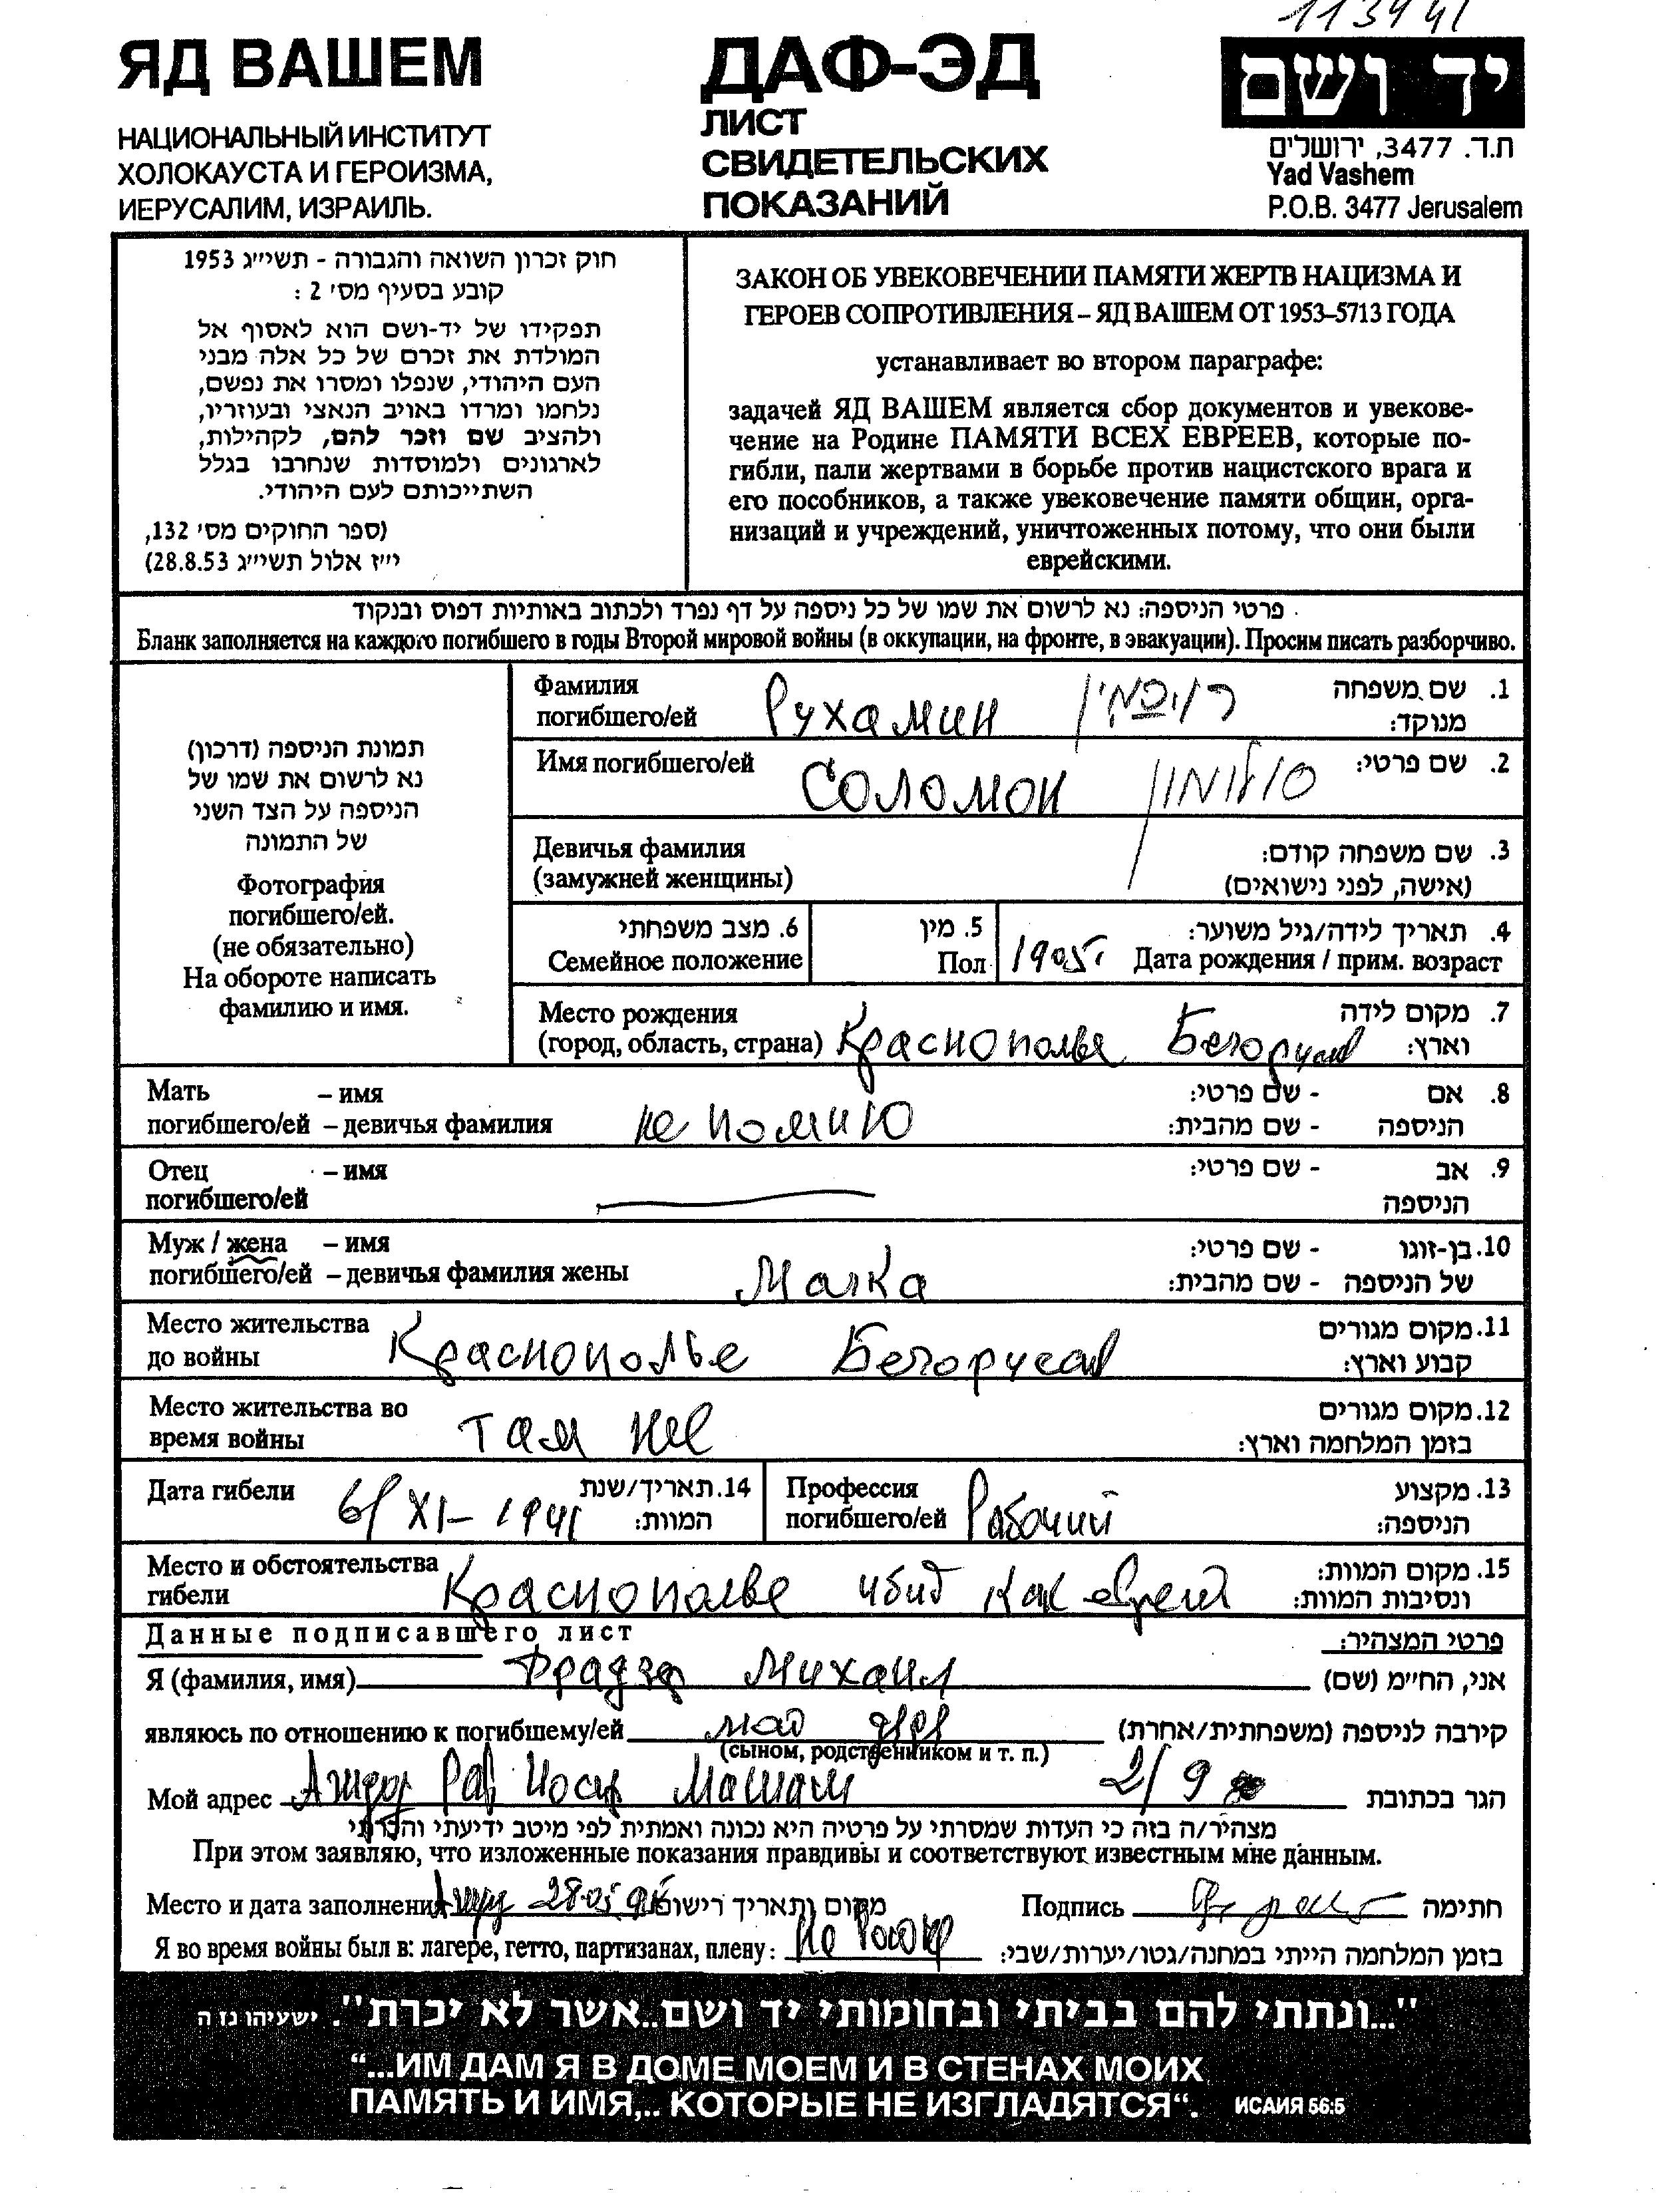 113441
ЯД ВАШЕМ
НАЦИОНАЛЬНЫЙ ИНСТИТУТ
ХОЛОКАУСТА И ГЕРОИЗМА,
ИЕРУСАЛИМ, ИЗРАИЛЬ.
ДАФ-ЭД
ЛИСТ
СВИДЕТЕЛЬСКИХ
ПОКАЗАНИЙ
יד ושם
ת.ד. 3477, ירושלים
Yad Vashem
P.O.B. 3477 Jerusalem
חוק זכרון השואה והגבורה - תשי״ג 1953
קובע בסעיף מס׳ 2 :
תפקידו של יד-ושם הוא לאסוף אל
המולדת את זכרם של כל אלה מבני
העם היהודי, שנפלו ומסרו את נפשם,
נלחמו ומרדו באויב הנאצי ובעוזריו,
ולהציב שם וזכר להם, לקהילות,
לארגונים ולמוסדות שנחרבו בגלל
השתייכותם לעם היהודי.
(ספר החוקים מס׳ 132,
י״ז אלול תשי״ג 28.8.53)
ЗАКОН ОБ УВЕКОВЕЧЕНИИ ПАМЯТИ ЖЕРТВ НАЦИЗМА И
ГЕРОЕВ СОПРОТИВЛЕНИЯ – ЯД ВАШЕМ ОТ 1953–5713 ГОДА
устанавливает во втором параграфе:
задачей ЯД ВАШЕМ является сбор документов и увекове-
чение на Родине ПАМЯТИ ВСЕХ ЕВРЕЕВ, которые по-
гибли, пали жертвами в борьбе против нацистского врага и
его пособников, а также увековечение памяти общин, орга-
низаций и учреждений, уничтоженных потому, что они были
еврейскими.
פרטי הניספה: נא לרשום את שמו של כל ניספה על דף נפרד ולכתוב באותיות דפוס ובנקוד
Бланк заполняется на каждого погибшего в годы Второй мировой войны (в оккупации, на фронте, в эвакуации). Просим писать разборчиво.
תמונת הניספה (דרכון)
נא לרשום את שמו של
הניספה על הצד השני
של התמונה
Фотография
погибшего/ей.
(не обязательно)
На обороте написать
фамилию и имя.
Фамилия
погибшего/ей Рухамин רוכמין 1. שם משפחה
מנוקד:
Имя погибшего/ей Соломон סולומון 2. שם פרטי:
Девичья фамилия 3. שם משפחה קודם:
(замужней женщины) (אישה, לפני נישואים)
6. מצב משפחתי 5. מין 4. תאריך לידה/גיל משוער:
Семейное положение Пол 1905г Дата рождения / прим. возраст
Место рождения 7. מקום לידה
(город, область, страна) Краснополье Белорусия וארץ:
Мать – имя 8. אם - שם פרטי:
погибшего/ей – девичья фамилия не помню הניספה - שם מהבית:
Отец – имя 9. אב - שם פרטי:
погибшего/ей הניספה
Муж / жена – имя 10. בן-זוגו - שם פרטי:
погибшего/ей – девичья фамилия жены Малка של הניספה - שם מהבית:
Место жительства 11. מקום מגורים
до войны Краснополье Белорусия קבוע וארץ:
Место жительства во 12. מקום מגורים
время войны там же בזמן המלחמה וארץ:
Дата гибели 6/XI-1941 14. תאריך/שנת
המוות:
Профессия 13. מקצוע
погибшего/ей Рабочий הניספה:
Место и обстоятельства 15. מקום המוות:
гибели Краснополье убит как еврей ונסיבות המוות:
Данные подписавшего лист פרטי המצהיר:
Я (фамилия, имя) Михаил אני, הח״מ (שם)
являюсь по отношению к погибшему/ей קירבה לניספה (משפחתית/אחרת)
(сыном, родственником и т. п.)
Мой адрес Ашдод Рав 2/9 הגר בכתובת
מצהיר/ה בזה כי העדות שמסרתי על פרטיה היא נכונה ואמתית לפי מיטב ידיעתי והכרתי
При этом заявляю, что изложенные показания правдивы и соответствуют известным мне данным.
Место и дата заполнения 28.05 מקום ותאריך רישום Подпись חתימה
Я во время войны был в: лагере, гетто, партизанах, плену: בזמן המלחמה הייתי במחנה/גטו/יערות/שבי:
"...ונתתי להם בביתי ובחומותי יד ושם..אשר לא יכרת". ישעיהו נו ה
“...ИМ ДАМ Я В ДОМЕ МОЕМ И В СТЕНАХ МОИХ
ПАМЯТЬ И ИМЯ,.. КОТОРЫЕ НЕ ИЗГЛАДЯТСЯ“. ИСАИЯ 56:5